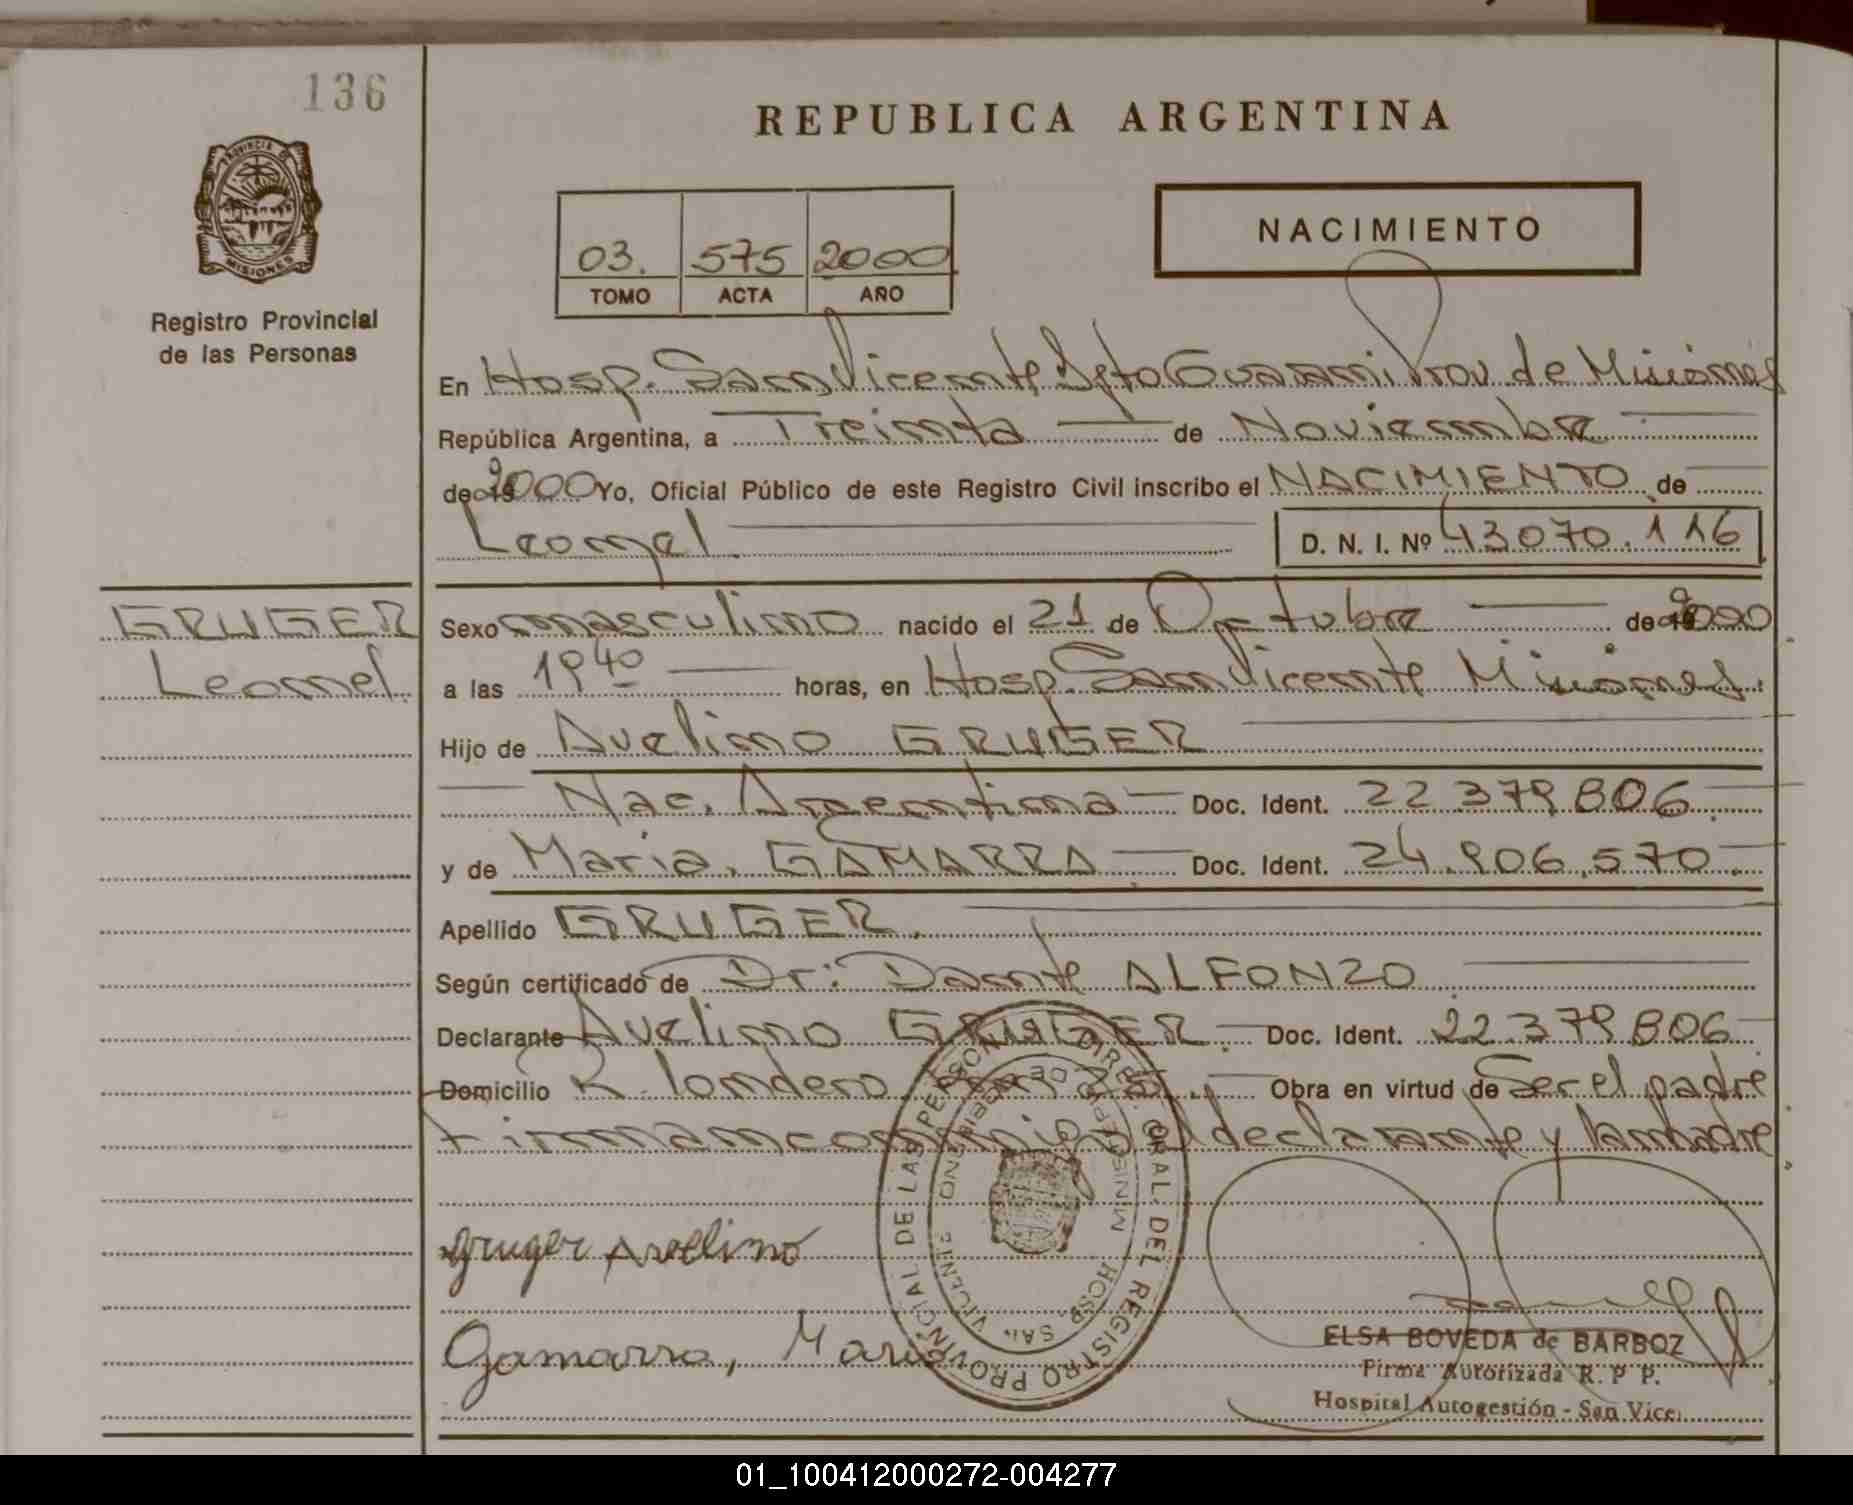 136
REPUBLICA ARGENTINA
PROVINCIA DE
MISIONES
Registro Provincial
de las Personas
03. 575 2000
TOMO ACTA AÑO
NACIMIENTO
En Hosp. San Vicente Dpto Guarani Prov de Misiones
República Argentina, a Treinta de Noviembre
de 2000 Yo, Oficial Público de este Registro Civil inscribo el NACIMIENTO de
Leonel D. N. I. Nº 43070.116
GRUGER
Leonel
Sexo masculino nacido el 21 de Octubre de 2000
a las 19 40 horas, en Hosp. San Vicente Misiones.
Hijo de Avelino GRUGER
Nac. Argentina Doc. Ident. 22 379 806
y de Maria GAMARRA Doc. Ident. 24.906.570
Apellido GRUGER.
Según certificado de Dr: Dante ALFONZO
Declarante Avelino GRUGER. Doc. Ident. 22.379 806
Domicilio R. londero Km 25. Obra en virtud de Ser el padre
Firman conmigo el declarante y la madre
gruger Avelino
Gamarra, Maria
DIREC. GRAL. DEL REGISTRO PROVINCIAL DE LAS PERSONAS
HOSP. SAN VICENTE
ELSA BOVEDA de BARBOZ
Firma Autorizada R. P P.
Hospital Autogestión - San Vice
01_100412000272-004277